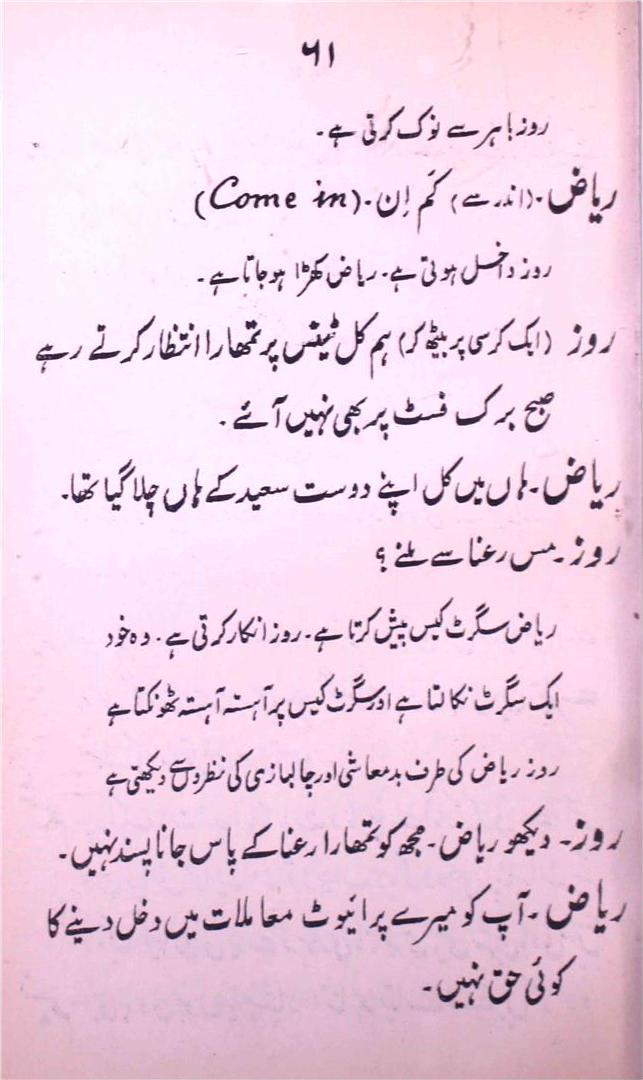 ۶۱
روز باہر سے نوک کرتی ہے۔
ریاض۔ (اندر سے) کَم اِن۔ (Come in)
روز داخل ہوتی ہے۔ ریاض کھڑا ہو جاتا ہے۔
روز (ایک کرسی پر بیٹھ کر) ہم کل ٹینس پر تمھارا انتظار کرتے رہے
صبح برک فسٹ پر بھی نہیں آئے۔
ریاض۔ ہاں میں کل اپنے دوست سعید کے ہاں چلا گیا تھا۔
روز۔ مس رعنا سے ملنے ؟
ریاض سگرٹ کیس پیش کرتا ہے۔ روز انکار کرتی ہے۔ وہ خود
ایک سگرٹ نکالتا ہے اور سگرٹ کیس پر آہستہ آہستہ ٹھونکتا ہے
روز ریاض کی طرف بدمعاشی اور چالبازی کی نظروں سے دیکھتی ہے
روز۔ دیکھو ریاض۔ مجھ کو تمھارا رعنا کے پاس جانا پسند نہیں۔
ریاض۔ آپ کو میرے پرائیوٹ معاملات میں دخل دینے کا
کوئی حق نہیں۔